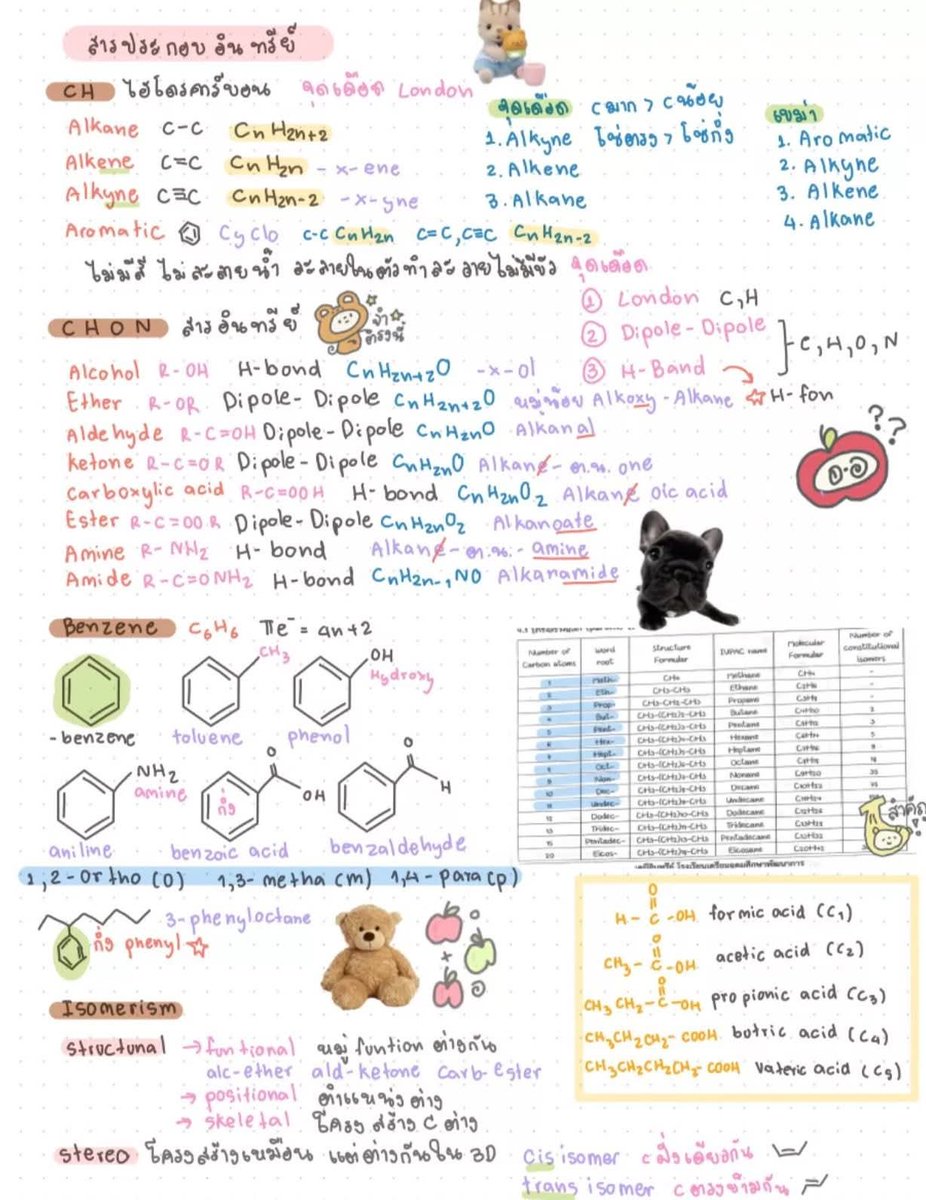 สารประกอบอินทรีย์
CH ไฮโดรคาร์บอน จุดเดือด London
Alkane C-C CnH2n+2
Alkene C=C CnH2n -x-ene
Alkyne C≡C CnH2n-2 -x-yne
Aromatic Cyclo C-C CnH2n C=C,C≡C CnH2n-2
ไม่มีสี ไม่ละลายน้ำ ละลายในตัวทำละลายไม่มีขั้ว
จุดเดือด Cมาก > Cน้อย
1. Alkyne โซ่ตรง > โซ่กิ่ง
2. Alkene
3. Alkane
เขม่า
1. Aromatic
2. Alkyne
3. Alkene
4. Alkane
จุดเดือด
① London C,H
② Dipole-Dipole
③ H-Band
C,H,O,N
☆ H-fon
CHON สารอินทรีย์
จำ
ตรงนี้
Alcohol R-OH H-bond CnH2n+2O -x-ol
Ether R-OR Dipole-Dipole CnH2n+2O หมู่น้อย Alkoxy-Alkane
Aldehyde R-C=OH Dipole-Dipole CnH2nO Alkanal
Ketone R-C=OR Dipole-Dipole CnH2nO Alkane-ต.น. one
Carboxylic acid R-C=OOH H-bond CnH2nO2 Alkane oic acid
Ester R-C=OOR Dipole-Dipole CnH2nO2 Alkanoate
Amine R-NH2 H-bond Alkane-ต.น.-amine
Amide R-C=ONH2 H-bond CnH2n-1NO Alkanamide
??
Benzene C6H6 πe⁻ = 4n+2
CH3
OH
Hydroxy
-benzene toluene phenol
NH2
amine
กิ่ง
O
OH
O
H
aniline benzoic acid benzaldehyde
1,2-ortho (o) 1,3-metha (m) 1,4-para (p)
3-phenyloctane
กิ่ง phenyl ☆
Number of Carbon atoms | Word root | Structure Formular | IUPAC name | Molecular Formular | Number of constitutional isomers
1 Meth- CH4 Methane CH4 -
2 Eth- CH3-CH3 Ethane C2H6 -
3 Prop- CH3-CH2-CH3 Propane C3H8 -
4 But- CH3-(CH2)2-CH3 Butane C4H10 2
5 Pent- CH3-(CH2)3-CH3 Pentane C5H12 3
6 Hex- CH3-(CH2)4-CH3 Hexane C6H14 5
7 Hept- CH3-(CH2)5-CH3 Heptane C7H16 9
8 Oct- CH3-(CH2)6-CH3 Octane C8H18 18
9 Non- CH3-(CH2)7-CH3 Nonane C9H20 35
10 Dec- CH3-(CH2)8-CH3 Decane C10H22 75
11 Undec- CH3-(CH2)9-CH3 Undecane C11H24
12 Dodec- CH3-(CH2)10-CH3 Dodecane C12H26
13 Tridec- CH3-(CH2)11-CH3 Tridecane C13H28
15 Pentadec- CH3-(CH2)13-CH3 Pentadecane C15H32
20 Eicos- CH3-(CH2)18-CH3 Eicosane C20H42
โรงเรียนเตรียมอุดมศึกษาพัฒนาการ
สำคัญ
O
H-C-OH formic acid (C1)
O
CH3-C-OH acetic acid (C2)
O
CH3CH2-C-OH propionic acid (C3)
CH3CH2CH2-COOH butric acid (C4)
CH3CH2CH2CH2-COOH Valeric acid (C5)
Isomerism
structunal → funtional หมู่ funtion ต่างกัน
alc-ether ald-ketone carb-ester
→ positional ตำแหน่งต่าง
→ skeletal โครงสร้าง C ต่าง
stereo โครงสร้างเหมือน แต่ต่างกันใน 3D
cis isomer c ฝั่งเดียวกัน
trans isomer c ตรงข้ามกัน